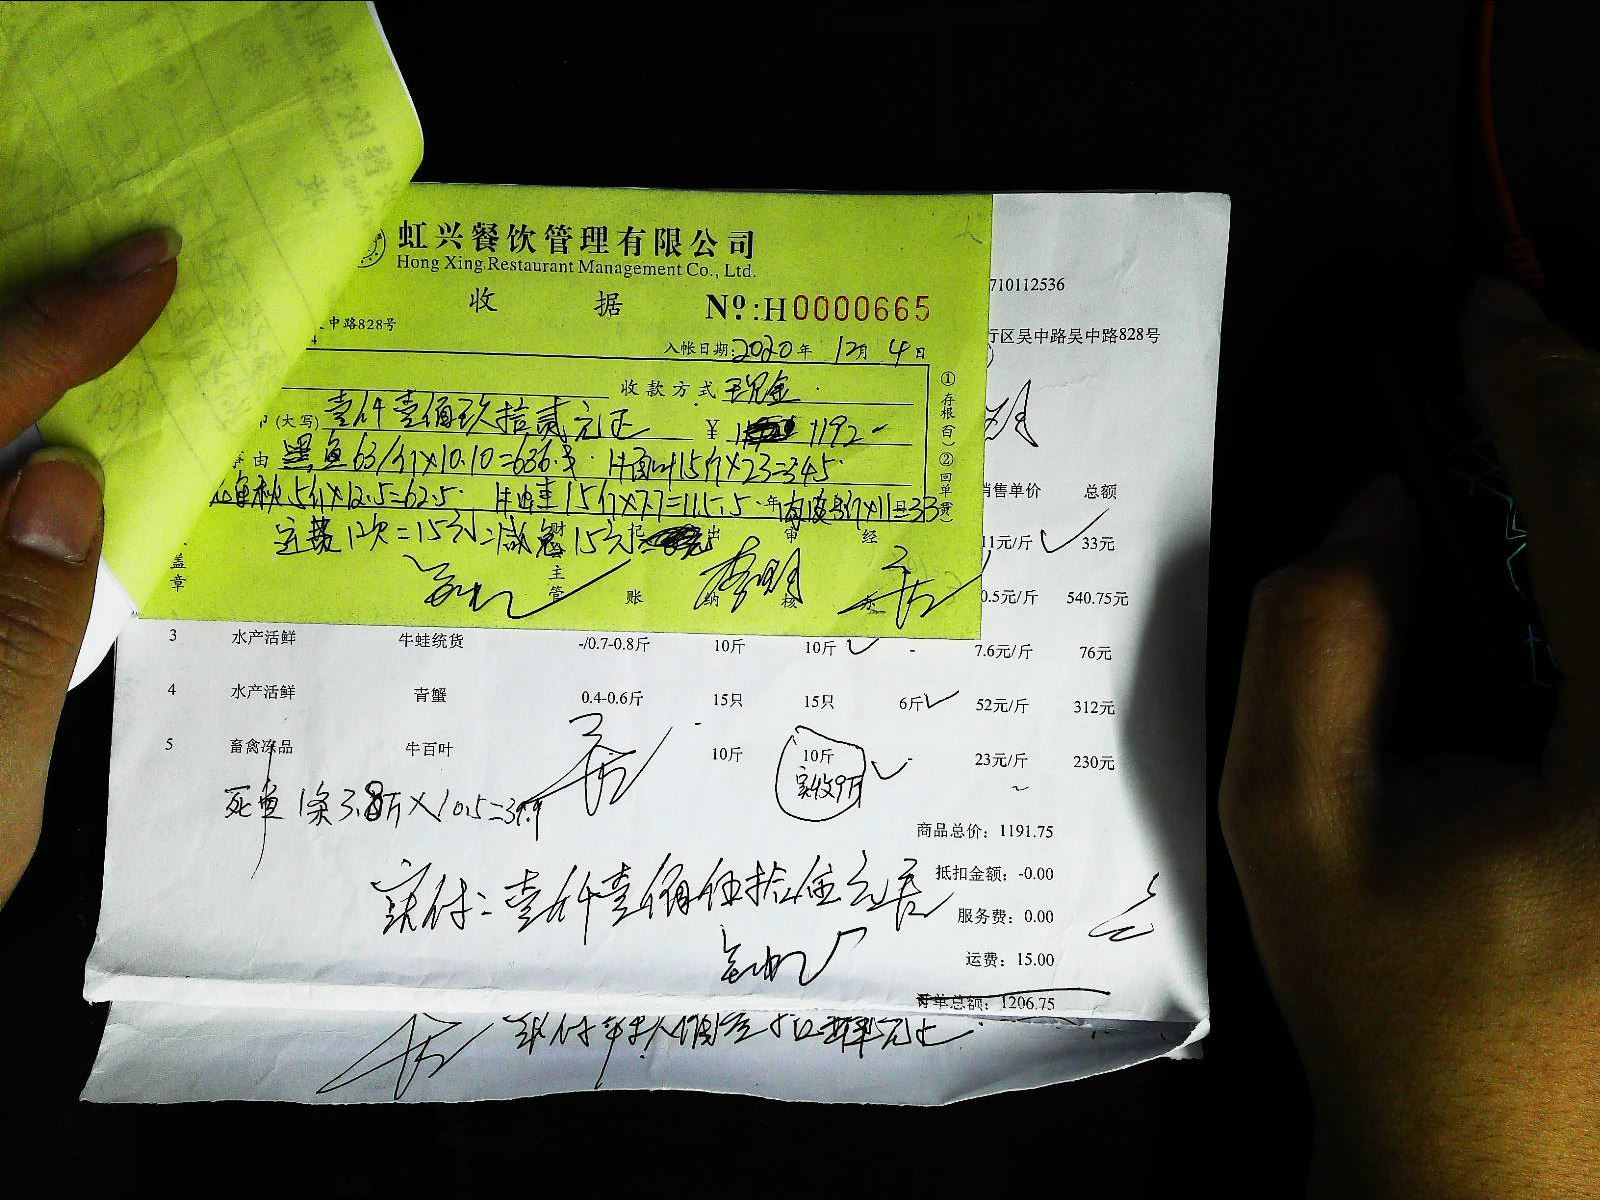 虹兴餐饮管理有限公司
Hong Xing Restaurant Management Co., Ltd.
收 据 Nº:H0000665
中路828号
入帐日期:2020年 12月 4日
收款方式 现金
(大写) 壹仟壹佰玖拾贰元正 ¥ 1192-
事由 黑鱼63斤×10.10=636.3 牛百叶15斤×23=345
5斤×12.5=62.5 牛蛙15斤×7.7=115.5 ×11=33
运费1次=15元 减免15元
盖章 财 主管 记 账 出 纳 审 核 经 办
①存根(白)②回单(黄)
710112536
行区吴中路吴中路828号
销售单价 总额
11元/斤 33元
0.5元/斤 540.75元
3 水产活鲜 牛蛙统货 -/0.7-0.8斤 10斤 10斤 - 7.6元/斤 76元
4 水产活鲜 青蟹 0.4-0.6斤 15只 15只 6斤 52元/斤 312元
5 畜禽冻品 牛百叶 10斤 10斤 - 23元/斤 230元
实收9斤
死鱼1条3.8斤×10.5=39.9
商品总价: 1191.75
抵扣金额: -0.00
实付:壹仟壹佰伍拾伍元
服务费: 0.00
运费: 15.00
订单总额: 1206.75